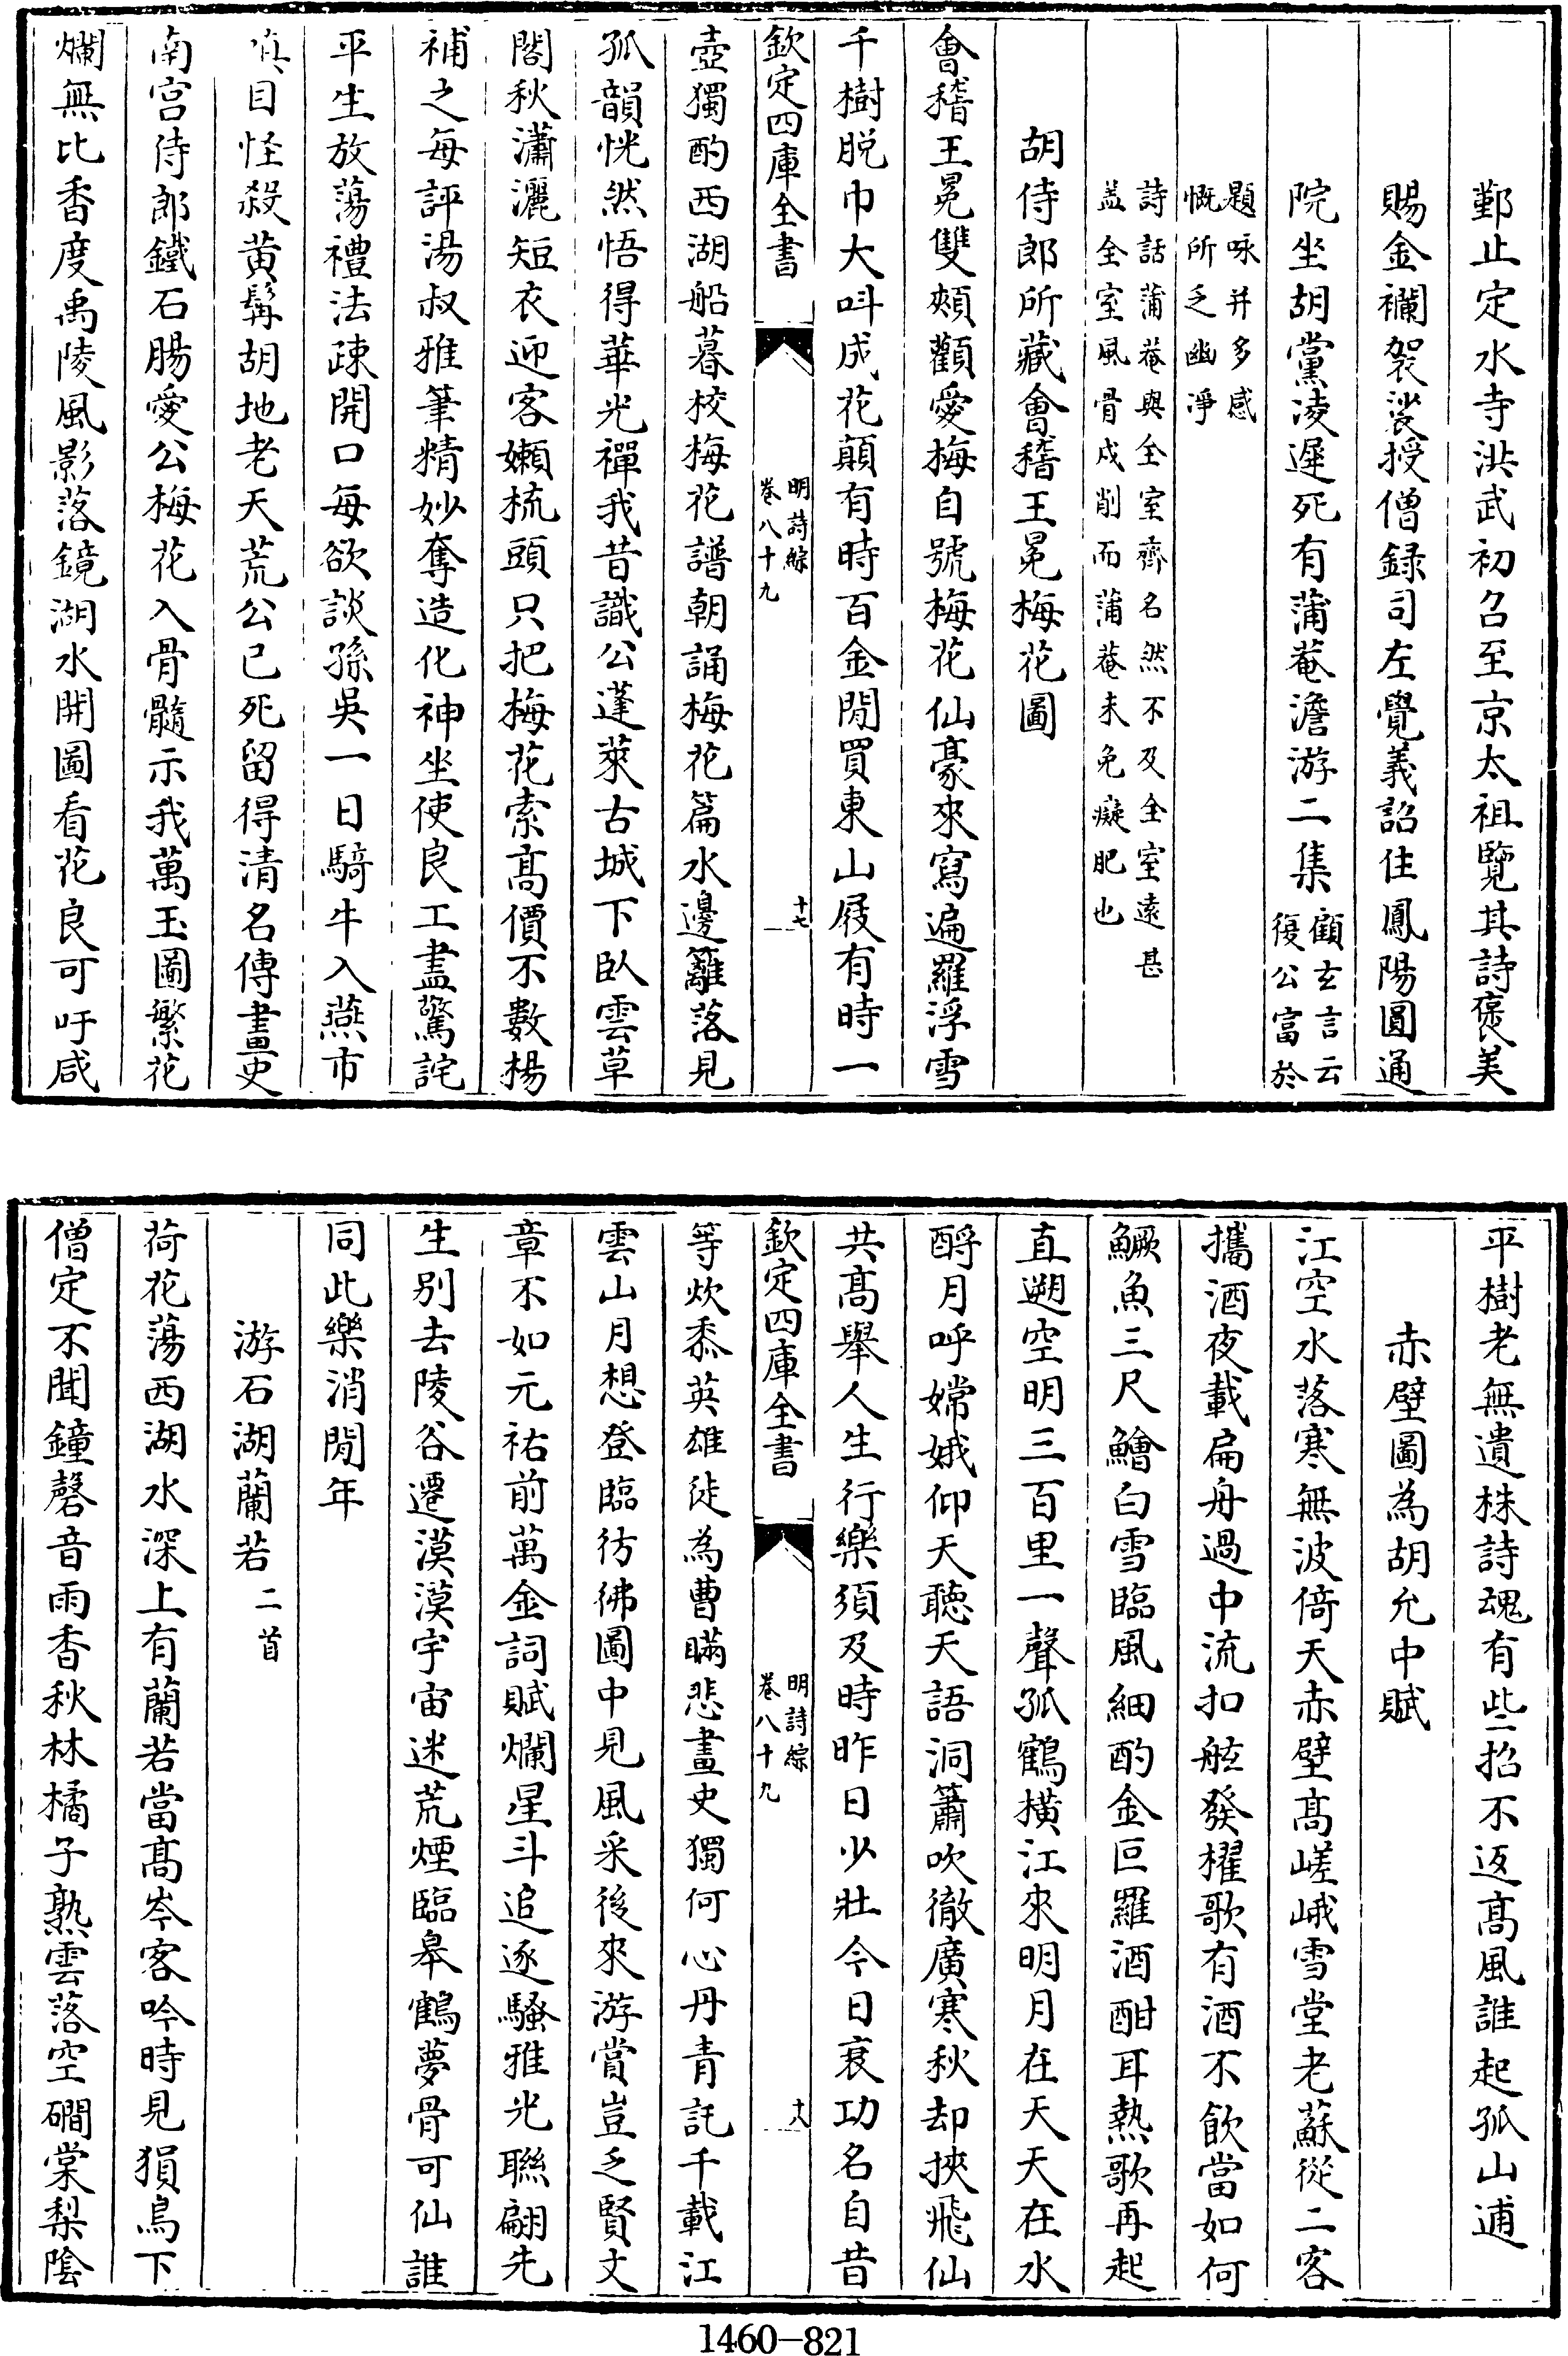 鄞止定水寺洪武初召至京太祖覽其詩褒美
賜金襴袈裟授僧録司左覺義詔住鳳陽圓通
院坐胡黨淩遲死有蒲菴澹游二集
顧玄言云
復公富於
題咏并多感
慨所乏幽淨
詩話蒲菴與全室齊名然不及全室遠甚
盖全室風骨戍削而蒲菴未免癡肥也
胡侍郎所藏會稽王冕梅花圖
會稽王冕雙頰顴愛梅自號梅花仙豪來寫遍羅浮雪
千樹脱巾大呌成花顛有時百金閒買東山屐有時一
欽定四庫全書
明詩綜
卷八十九
十七
壺獨酌西湖船暮校梅花譜朝誦梅花篇水邊籬落見
孤韻恍然悟得華光禪我昔識公蓬萊古城下臥雲草
閣秋瀟灑短衣迎客嬾梳頭只把梅花索髙價不數楊
補之每評湯叔雅筆精妙奪造化神坐使良工盡驚詫
平生放蕩禮法疎開口每欲談孫吳一日騎牛入燕市
嗔目怪殺黄髯胡地老天荒公已死留得清名傳畫史
南宫侍郎鐵石腸愛公梅花入骨髓示我萬玉圖繁花
爛無比香度禹陵風影落鏡湖水開圖看花良可吁咸
平樹老無遺株詩魂有些招不返髙風誰起孤山逋
赤壁圖為胡允中賦
江空水落寒無波倚天赤壁髙嵯峨雪堂老蘇從二客
攜酒夜載扁舟過中流扣舷發櫂歌有酒不飲當如何
鱖魚三尺鱠白雪臨風細酌金叵羅酒酣耳熱歌再起
直遡空明三百里一聲孤鶴橫江來明月在天天在水
酹月呼嫦娥仰天聽天語洞簫吹徹廣寒秋却挾飛仙
共髙舉人生行樂須及時昨日少壯今日衰功名自昔
欽定四庫全書
明詩綜
卷八十九
十八
等炊黍英雄徒為曹瞞悲畫史獨何心丹青託千載江
雲山月想登臨彷彿圖中見風采後來游賞豈乏賢文
章不如元祐前萬金詞賦爛星斗追逐騷雅光聯翩先
生别去陵谷遷漠漠宇宙迷荒煙臨皋鶴夢骨可仙誰
同此樂消閒年
游石湖蘭若二首
荷花蕩西湖水深上有蘭若當髙岑客吟時見狽鳥下
僧定不聞鐘磬音雨香秋林橘子熟雲落空磵棠梨陰
1460-821